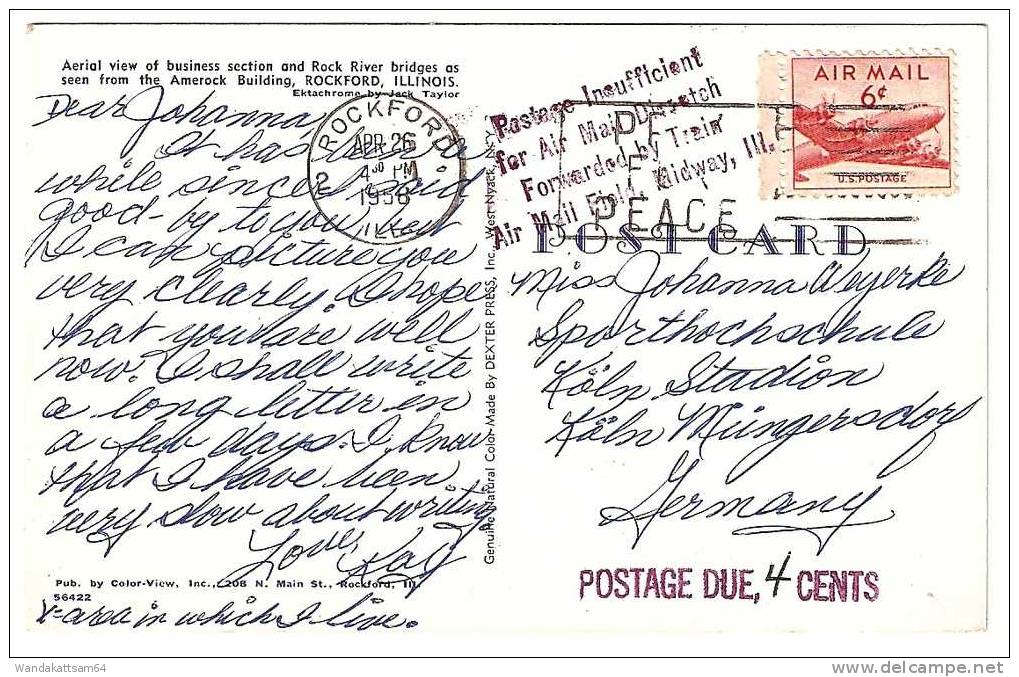 Aerial view of business section and Rock River bridges as
seen from the Amerock Building, ROCKFORD, ILLINOIS.
Ektachrome by Jack Taylor
Dear Johanna,
It has been a
while since I said
good-by to you but
I can picture you
very clearly. I hope
that you are well
now. I shall write
a long letter in
a few days. I know
that I have been
very slow about writing
Love, Kay
Pub. by Color-View, Inc., 208 N. Main St., Rockford, Ill.
56422
X-area in which I live.
Genuine Natural Color Made By DEXTER PRESS, Inc. West Nyack, N.Y.
ROCKFORD
2
APR 26
4 30 PM
1958
ILL.
Postage Insufficient
for Air Mail Dispatch
Forwarded by Train
Air Mail Field, Midway, Ill.
PEACE
AIR MAIL
6¢
U.S. POSTAGE
POST CARD
Miss Johanna
Sporthochschule
Köln Stadion
Köln Müngersdorf
Germany
POSTAGE DUE, 4 CENTS
Wandakattsam64
delcampe.net